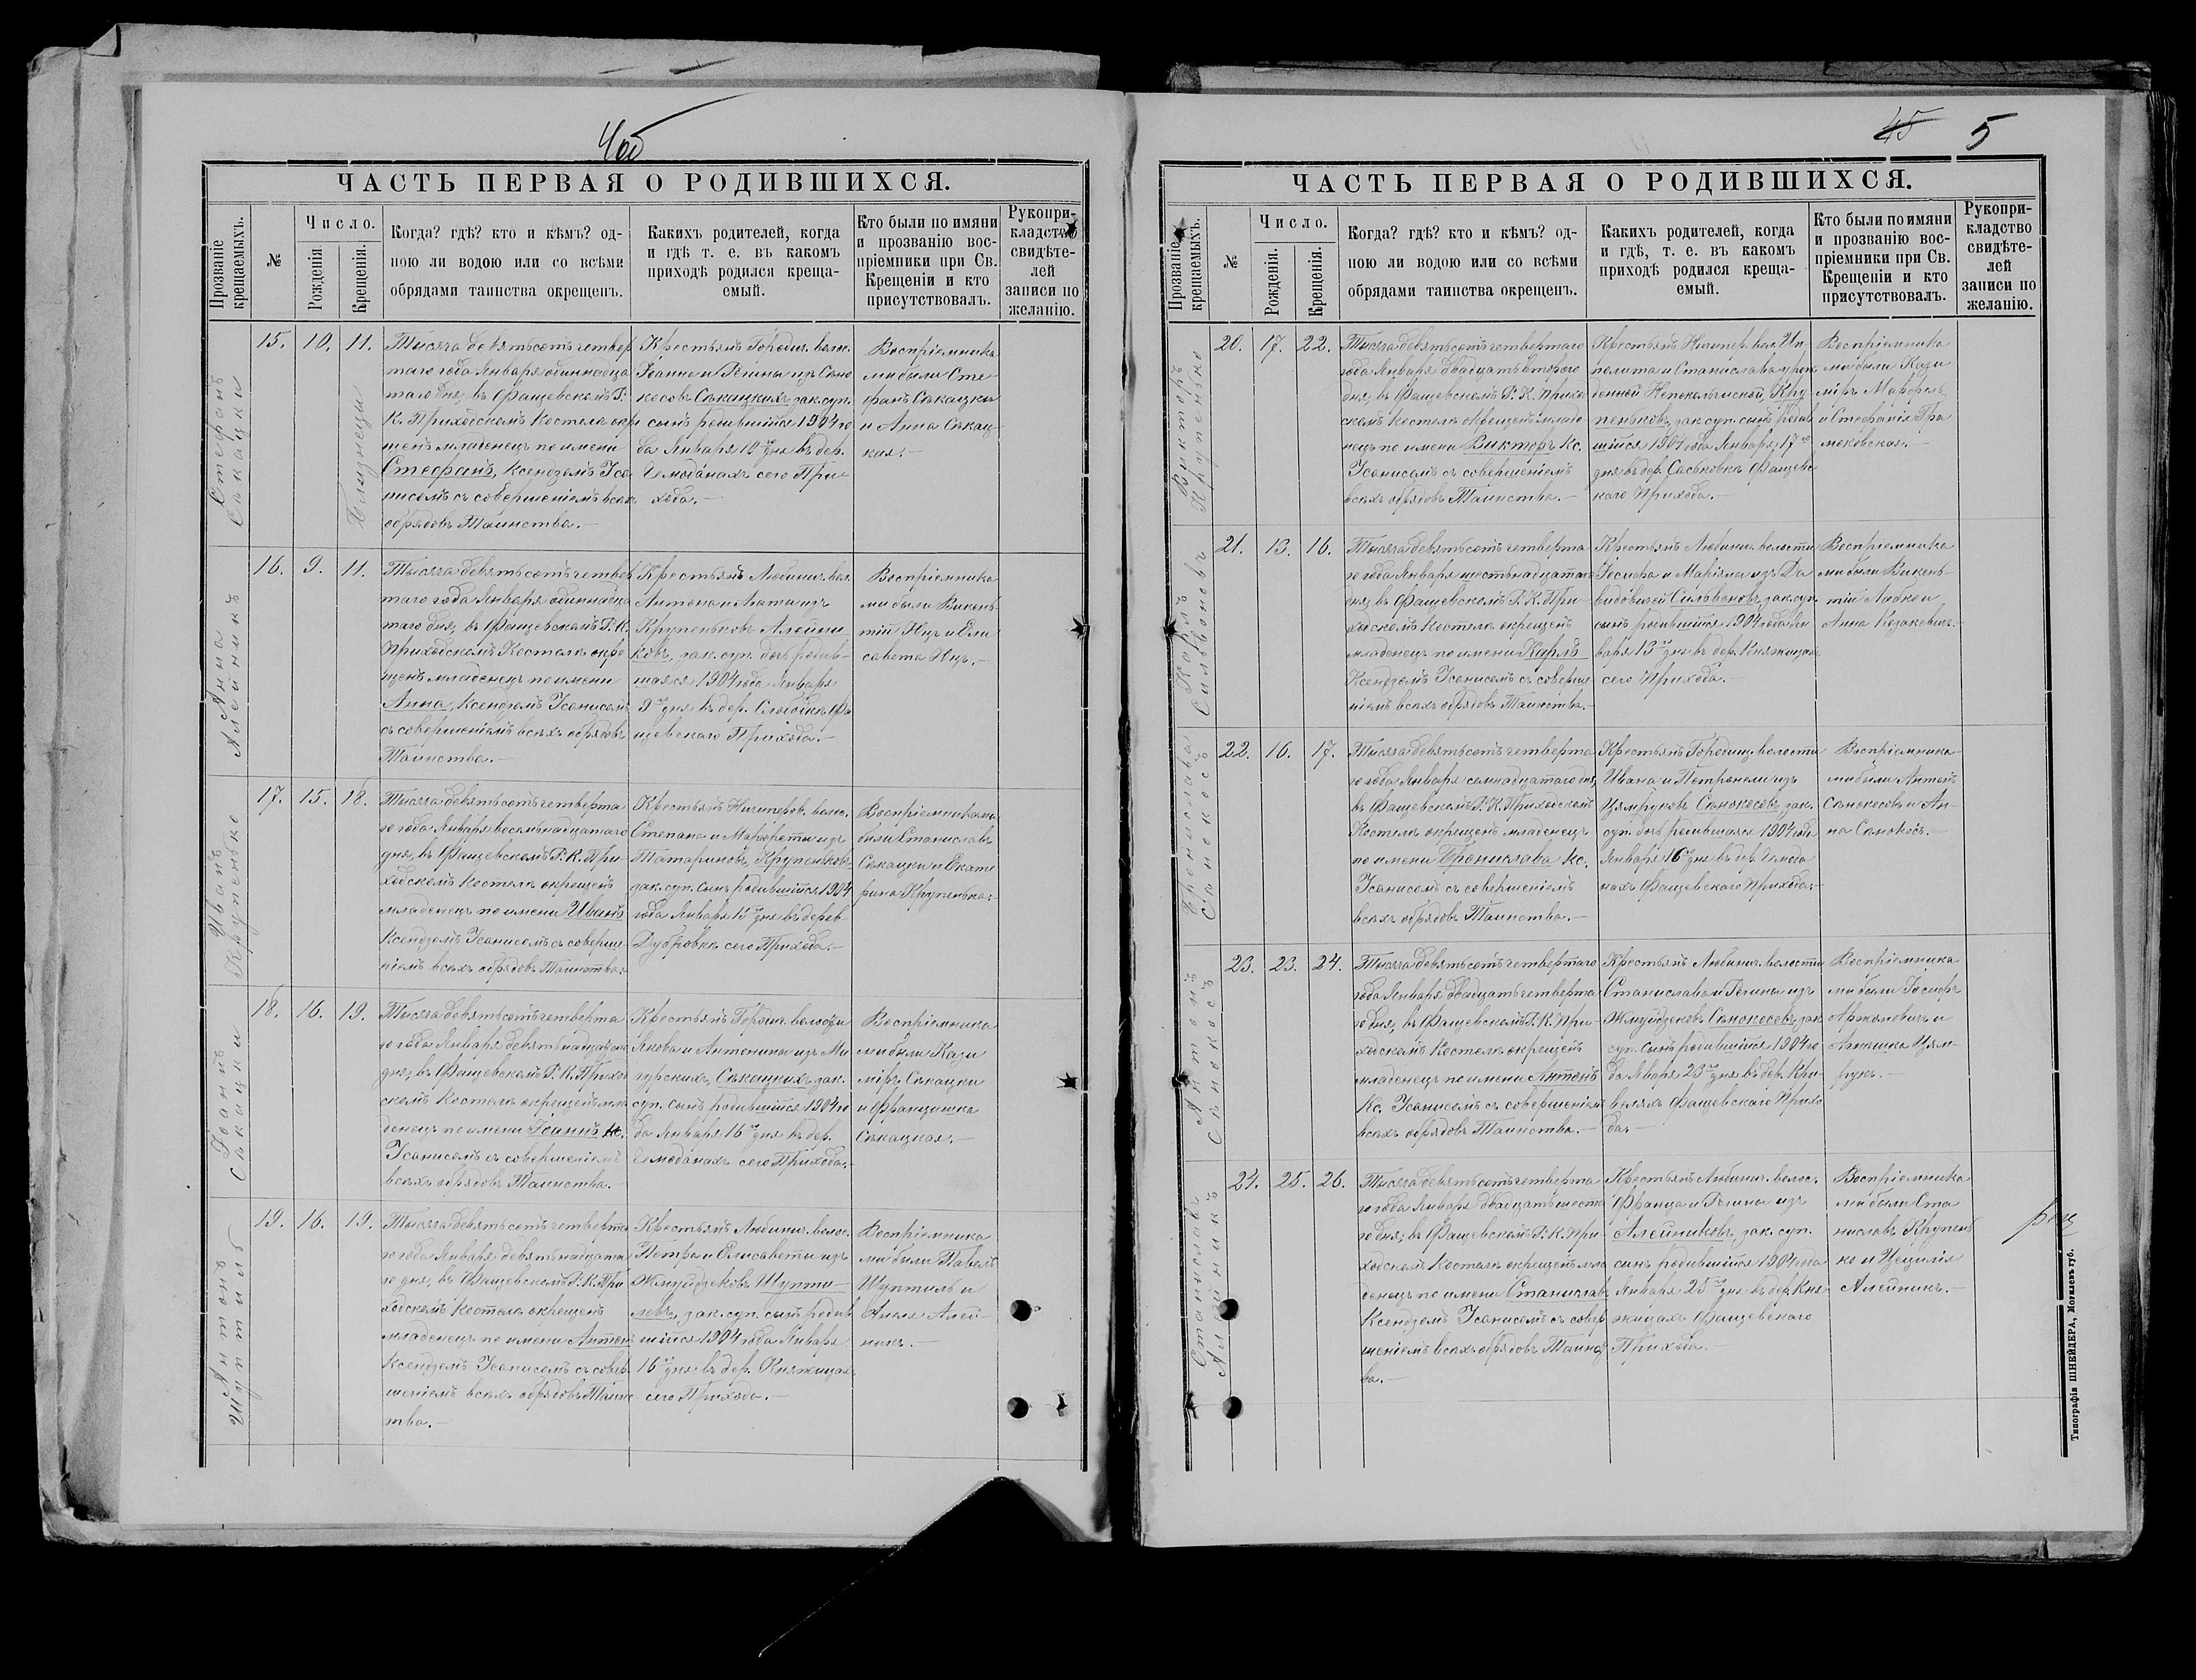 4об
ЧАСТЬ ПЕРВАЯ О РОДИВШИХСЯ.
Прозваніе крещаемыхъ.
№
Число.
Рожденія
Крещенія.
Когда? гдѣ? кто и кѣмъ? од-
ною ли водою или со всѣми
обрядами таинства окрещенъ.
Какихъ родителей, когда
и гдѣ т. е. въ какомъ
приходѣ родился креща-
емый.
Кто были по имяни
и прозванію вос-
пріемники при Св.
Крещеніи и кто
присутствовалъ.
Рукопри-
кладство
свидѣте-
лей
записи по
желанію.
Стефанъ
Сѣкацки
15.
10.
11.
Близнецы
Тысяча девятьсотъ четвер
таго года Января одиннадца
таго дня, въ Фащевскомъ Р.
К. Приходскомъ Костелѣ окре
щенъ младенецъ по имени
Стефанъ, Ксендзомъ
съ совершеніемъ всѣхъ
обрядовъ Таинства.–
Крестьянъ Городищ. волос.
Іоанна и Регины изъ Сѣно
косовъ Сѣкацкихъ зак. суп.
сынъ родившійся 1904 го
да Января 10го дня въ дер.
Чемоданахъ сего При-
хода.–
Воспріемника
ми были Сте
фанъ Сѣкацки
и Анна Сѣкац-
кая.–
Анна
Алейникъ
16.
9.
11.
Тысяча девятьсотъ четвер
таго года Января одиннадца
таго дня, въ Фащевскомъ Р. К.
Приходскомъ Костелѣ окре
щенъ младенецъ по имени
Анна, Ксендзомъ
съ совершеніемъ всѣхъ обрядовъ
Таинства.–
Крестьянъ Любинич. вол.
Антона и Агаты изъ
Крупеньковъ Алейни
ковъ, зак. суп. дочь родив-
шаяся 1904 года Января
9го дня въ дер. Слободкѣ Фа
щевскаго Прихода.–
Воспріемника
ми были Викень
тій и Ели
савета
Иванъ
Крупенько
17.
15.
18.
Тысяча девятьсотъ четверта
го года Января восемьнадцатаго
дня, въ Фащевскомъ Р. К. При
ходскомъ Костелѣ окрещенъ
младенецъ по имени Иванъ
Ксендзомъ съ соверше-
ніемъ всѣхъ обрядовъ Таинства.–
Крестьянъ волос.
Степана и Маргареты изъ
Татариновъ, Крупеньковъ
зак. суп. сынъ родившійся 1904
года Января 15го дня въ дерев.
Дубровкѣ сего Прихода.–
Воспріемниками
были Станиславъ
Сѣкацки и Екате
рина Крупенько.–
Іоаннъ
Сѣкацки
18.
16.
19.
Тысяча девятьсотъ четверта
го года Января девятьнадцатаго
дня, въ Фащевскомъ Р. К. Приход
скомъ Костелѣ окрещенъ мла
денецъ по имени Іоаннъ Кс.
съ совершеніемъ
всѣхъ обрядовъ Таинства.–
Крестьянъ Городищ. волости
Якова и Антонины изъ
Сѣкацкихъ, зак.
суп. сынъ родившійся 1904 го
да Января 16го дня въ дер.
Чемоданахъ сего Прихода.–
Воспріемника
ми были Кази
міръ Сѣкацки
и Францишка
Сѣкацкая.–
Антонъ
Шуптиль
19.
16.
19.
Тысяча девятьсотъ четверта
го года Января девятьнадцата
го дня, въ Фащевскомъ Р. К. При
ходскомъ Костелѣ окрещенъ
младенецъ по имени Антонъ
Ксендзомъ съ совер
шеніемъ всѣхъ обрядовъ Таинс
тва.–
Крестьянъ Любинич. волос.
Петра и Елисаветы изъ
Жмуйдзековъ Шупти-
левъ, зак. суп. сынъ родив
шійся 1904 года Января
16го дня въ дер. Княжицахъ
сего Прихода.–
Воспріемника
ми были Павелъ
Шуптиль и
Анна Алей-
никъ.–
45
5
ЧАСТЬ ПЕРВАЯ О РОДИВШИХСЯ.
Прозваніе крещаемыхъ.
№
Число.
Рожденія.
Крещенія.
Когда? гдѣ? кто и кѣмъ? од-
ною ли водою или со всѣми
обрядами таинства окрещенъ.
Какихъ родителей, когда
и гдѣ, т. е. въ какомъ
приходѣ родился креща-
емый.
Кто были по имяни
и прозванію вос-
пріемники при Св.
Крещеніи и кто
присутствовалъ.
Рукопри-
кладство
свидѣте-
лей
записи по
желанію.
Викторъ
Крупенько
20.
17.
22.
Тысяча девятьсотъ четвертаго
года Января двадцать второго
дня, въ Фащевскомъ Р. К. Приход
скомъ Костелѣ окрещенъ младе
нецъ по имени Викторъ Кс.
съ совершеніемъ
всѣхъ обрядовъ Таинства.–
Крестьянъ вол. Ип-
полита и Станиславы урож
денной Кру
пеньковъ, зак. суп. сынъ родив
шійся 1904 года Января 17го
дня въ дер. Саськовкѣ Фащевс
каго Прихода.–
Воспріемника
ми были Кази
міръ
и Стефанія
Карлъ
Сильвоновъ
21.
13.
16.
Тысяча девятьсотъ четверта
го года Января шестьнадцатаго
дня, въ Фащевскомъ Р. К. При-
ходскомъ Костелѣ окрещенъ
младенецъ по имени Карлъ
Ксендзомъ съ соверше
ніемъ всѣхъ обрядовъ Таинства.–
Крестьянъ Любинич. волости
Іосифа и Маріянны изъ Да
видовичей Сильвоновъ, зак. суп.
сынъ родившійся 1904 года Ян
варя 13го дня въ дер. Княжицахъ
сего Прихода.–
Воспріемника
ми были Викень-
тій и
Анна Козакевичъ.–
Брониславa
Сѣнокосъ
22.
16.
17.
Тысяча девятьсотъ четверта
го года Января семнадцатаго дня,
въ Фащевскомъ Р. К. Приходскомъ
Костелѣ окрещенъ младенецъ
по имени Бронислава Кс.
съ совершеніемъ
всѣхъ обрядовъ Таинства.–
Крестьянъ Городищ. волости
Ивана и Петронели изъ
Цямруковъ Сѣнокосовъ, зак.
суп. дочь родившаяся 1904 года
Января 16го дня въ дер. Чемода
нахъ Фащевскаго Прихода.–
Воспріемника
ми были Антонъ
Сѣнокосовъ и Ан-
на Сѣнокосъ.–
Антонъ
Сѣнокосъ
23.
23.
24.
Тысяча девятьсотъ четвертаго
года Января двадцать четверта
го дня, въ Фащевскомъ Р. К. При-
ходскомъ Костелѣ окрещенъ
младенецъ по имени Антонъ
Кс. съ совершеніемъ
всѣхъ обрядовъ Таинства.–
Крестьянъ Любинич. волости
Станислава и Регины изъ
Жмуйдзековъ Сѣнокосовъ, зак.
суп. сынъ родившійся 1904 го
да Января 23го дня въ дер. Кри-
веляхъ Фащевскаго Прихо
да.–
Воспріемника
ми были Іосифъ
и
Цям-
рукъ.–
Станиславъ
Алейникъ
24.
25.
26.
Тысяча девятьсотъ четверта
го года Января двадцать шеста
го дня, въ Фащевскомъ Р. К. При
ходскомъ Костелѣ окрещенъ мла
денецъ по имени Станиславъ
Ксендзомъ съ совер
шеніемъ всѣхъ обрядовъ Таинст
ва.–
Крестьянъ Любинич. волос.
Франца и Регины изъ
Алейниковъ, зак. суп.
сынъ родившійся 1904 года
Января 25го дня въ дер. Кня-
жицахъ Фащевскаго
Прихода.–
Воспріемника
ми были Ста
ниславъ Крупень
ко и Цецилія
Алейникъ.–
Типографія ШНЕЙДЕРА, Могилевъ губ.